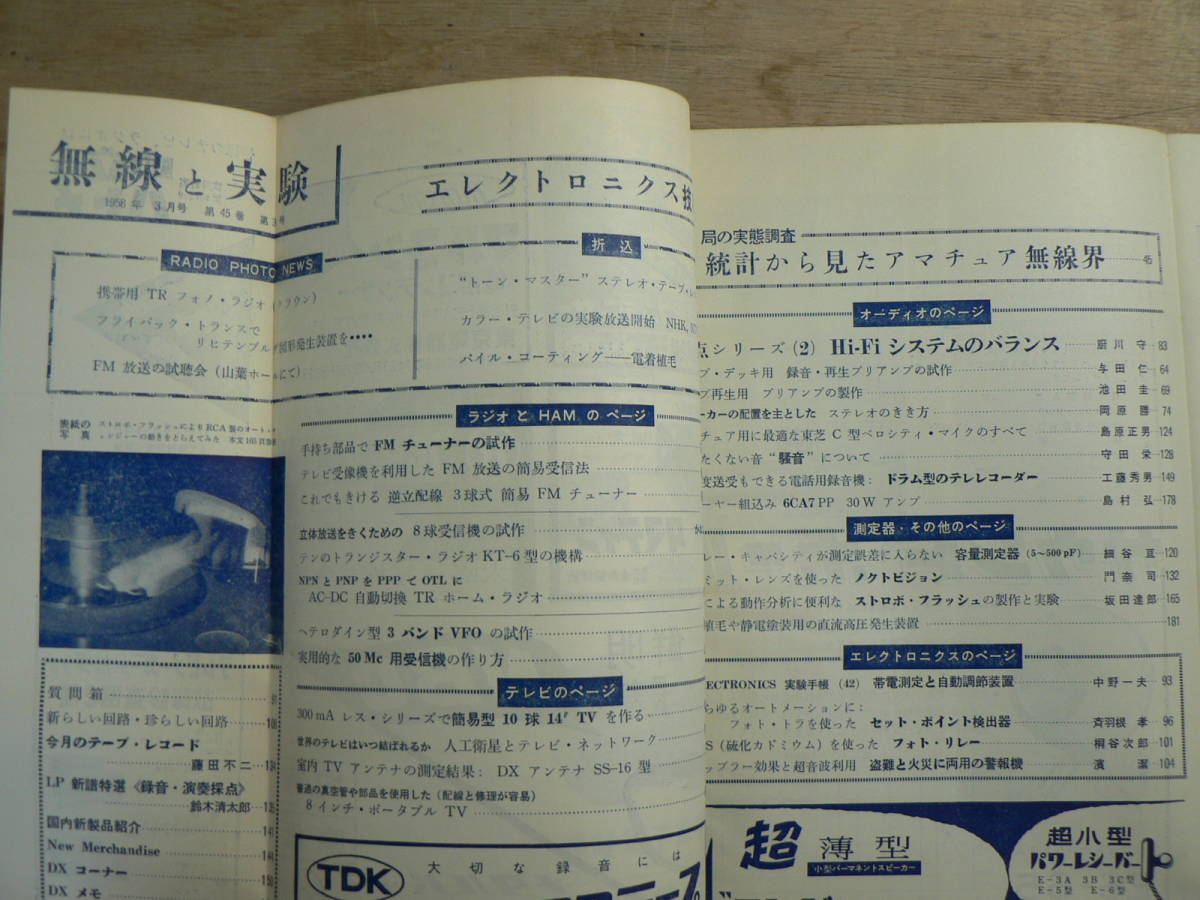 無線と実験
1958年 3月号 第45巻 第3号
エレクトロニクス技
RADIO PHOTO NEWS
携帯用 TR フォノ・ラジオ（クラウン）
フライバック・トランスで
リヒテンブルグ図形発生装置を・・・・
FM 放送の試聴会（山葉ホールにて）
折込
“トーン・マスター” ステレオ・テープ・レ
カラー・テレビの実験放送開始 NHK, NT
パイル・コーティング——電着植毛
表紙の写真
ストロボ・フラッシュにより RCA 製のオート・チ
ェンジャーの動きをとらえてみた 本文165頁参照
質問箱
新らしい回路・珍らしい回路
今月のテープ・レコード
藤田不二
LP 新譜特選《録音・演奏採点》
鈴木清太郎
国内新製品紹介 141
New Merchandise 144
DX コーナー 150
DX メモ
ラジオと HAM のページ
手持ち部品で FM チューナーの試作
テレビ受像機を利用した FM 放送の簡易受信法
これでもきける 逆立配線 3球式 簡易 FM チューナー
立体放送をきくための 8球受信機の試作
テンのトランジスター・ラジオ KT-6 型の機構
NPN と PNP を PPP て OTL に
AC-DC 自動切換 TR ホーム・ラジオ
ヘテロダイン型 3 バンド VFO の試作
実用的な 50 Mc 用受信機の作り方
テレビのページ
300 mA レス・シリーズで簡易型 10 球 14″ TV を作る
世界のテレビはいつ結ばれるか 人工衛星とテレビ・ネットワーク
室内 TV アンテナの測定結果： DX アンテナ SS-16 型
普通の真空管や部品を使用した（配線と修理が容易）
8 インチ・ポータブル TV
TDK
大切な録音には
局の実態調査
統計から見たアマチュア無線界 45
オーディオのページ
点シリーズ (2) Hi-Fi システムのバランス 厨川 守 83
プ・デッキ用 録音・再生プリアンプの試作 与田 仁 64
プ再生用 プリアンプの製作 池田 圭 69
ーカーの配置を主とした ステレオのきき方 岡原 勝 74
チュア用に最適な東芝 C 型ベロシティ・マイクのすべて 島原正男 124
たくない音 “騒音” について 守田 栄 128
変送受もできる電話用録音機： ドラム型のテレレコーダー 工藤秀男 149
ーヤー組込み 6CA7 PP 30 W アンプ 島村 弘 178
測定器・その他のページ
レー・キャパシティが測定誤差に入らない 容量測定器 (5～500 pF) 細谷 亘 120
ミット・レンズを使った ノクトビジョン 門奈 司 132
による動作分析に便利な ストロボ・フラッシュの製作と実験 坂田達郎 165
植毛や静電塗装用の直流高圧発生装置 181
エレクトロニクスのページ
ECTRONICS 実験手帳 (42) 帯電測定と自動調節装置 中野一夫 93
らゆるオートメーションに：
フォト・トラを使った セット・ポイント検出器 斉羽根 孝 96
S（硫化カドミウム）を使った フォト・リレー 桐谷次郎 101
ップラー効果と超音波利用 盗難と火災に両用の警報機 濱 潔 104
超薄型
小型パーマネントスピーカー
超小型
パワーレシーバー
E-3A 3B 3C型
E-5型 E-6型